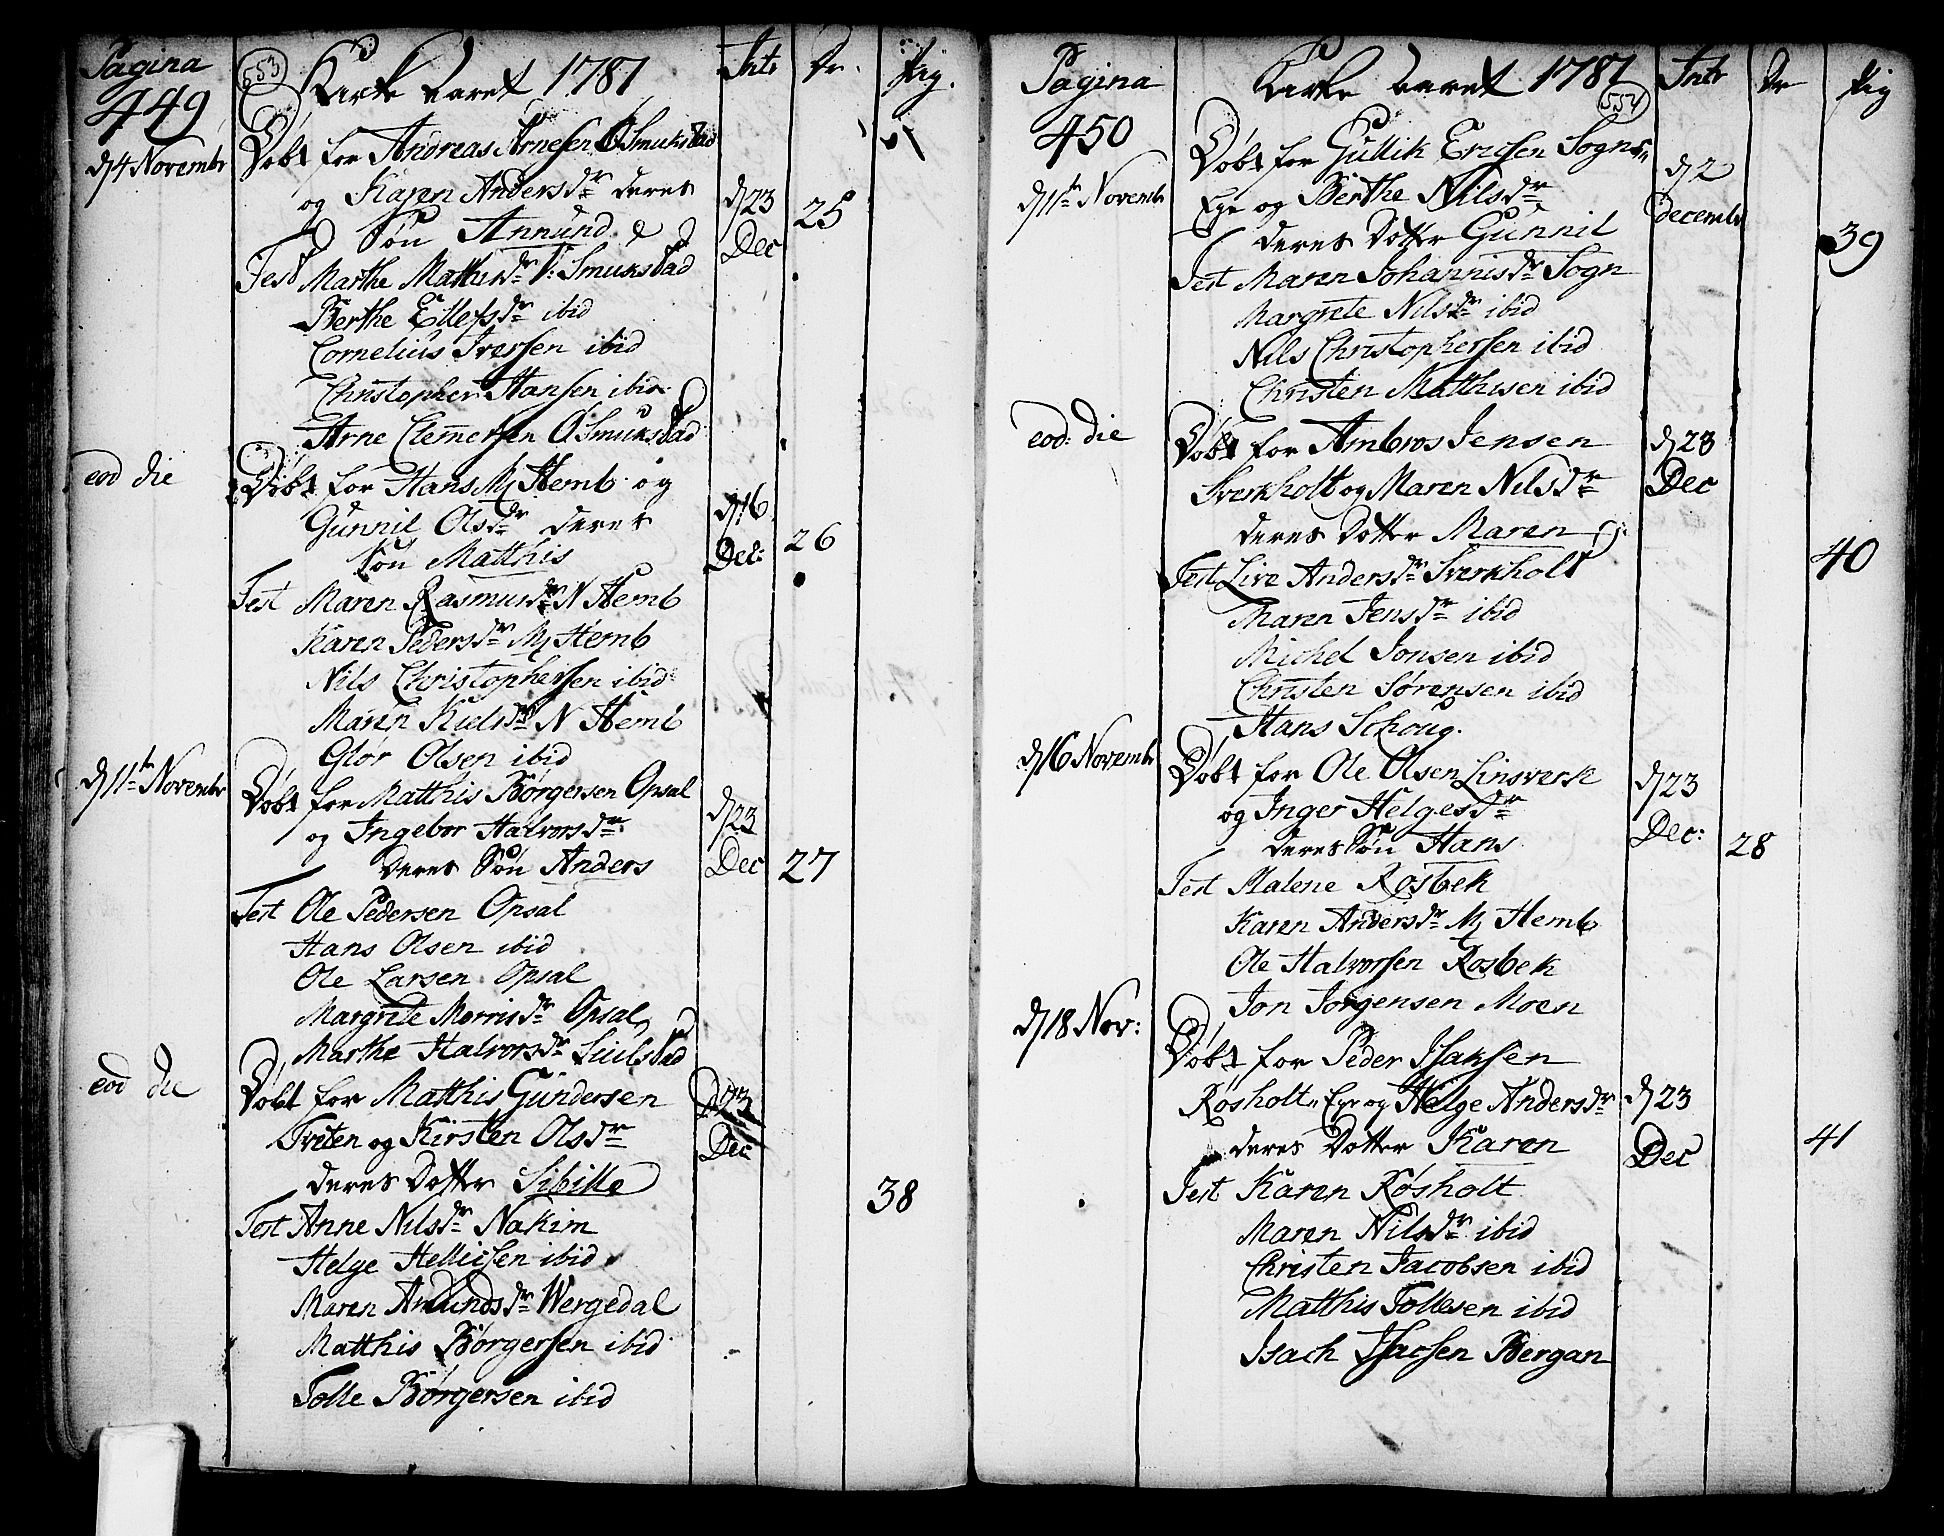 Pagina
449
553
Kirke Aaret 1781
Intr
Dr.
Pig.
d/4 Novembr
Døbt for Andreas Arnesen Ø Smukstad
og Karen Andersdr deres
Søn Annund
d/23
Dec
25
Test Marthe Mathisdr V: Smukstad
Berthe Ellefsdr ibid
Cornelius Iversen ibid
Christopher Hansen ibid
Arne Clemersen Ø Smukstad
eod die
Døbt for Hans M Hemb og
Gunnil Olsdr deres
Søn Matthis
d/16
Dec:
26
Test Maren Rasmusdr N Hemb
Karen Pedersdr M Hemb
Nils Christophersen ibid
Maren Kielsdr N Hemb
Glør Olsen ibid
d/11te Novembr
Døbt for Matthis Børgersen Opsal
og Ingebor Halvorsdr
deres Søn Anders
d/23
Dec
27
Test Ole Pedersen Opsal
Hans Olsen ibid
Ole Larsen Opsal
Margrete Morrisdr Opsal
Marthe Halvorsdr
eod die
Døbt for Matthis Gundersen
Tveten og Kirsten Olsdr
deres Dotter Sibille
D/23
Dec
38
Test Anne Nilsdr Nakim
Helge Hellicsen ibid
Maren Amundsdr Wergedal
Matthis Børgersen ibid
Tolle Børgersen ibid
Pagina
450
Kirke Aaret 1781
554
Intr
Dr
Pig
d/11te Novembr
Døbt for Gullik Ericsen Sogn
Eye og Berthe Nilsdr
deres Dotter Gunnil
d/2
decembr
39
Test Maren Johannisdr Sogn
Margrete Nilsdr ibid
Nils Christophersen ibid
Christen Matthisen ibid
eod: die
Døbt for Ambros Jensen
Sverkholt og Maren Nilsdr
deres Dotter Maren
d/23
Dec
40
Test Live Andersdr Sverkholt
Maren Jensdr ibid
Michel Jonsen ibid
Christen Sørensen ibid
Hans Schoug.
d/16 Novembr
Døbt for Ole Olsen Linsverk
og Inger Helgesdr
deres Søn Hans
d/23
Dec:
28
Test Malene Rosbek
Karen Andersdr M Hemb
Ole Halvorsen Rosbek
Jon Jørgensen Moen
d/18 Nov:
Døbt for Peder Isaksen
Røsholt Eye og Helge Andersdr
deres Dotter Karen
d/23
Dec
41
Test Karen Røsholt
Maren Nilsdr ibid
Christen Jacobsen ibid
Matthis Tollesen ibid
Isach Isacsen Bergan